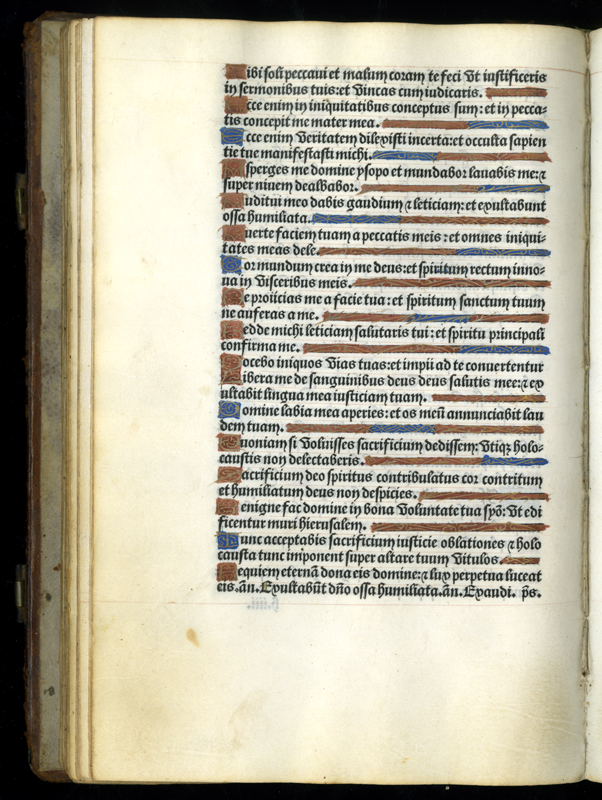 Tibi soli peccaui et malum coram te feci Vt iustificeris
in sermonibus tuis: et Vincas cum iudicaris.
Ecce enim in iniquitatibus conceptus sum: et in pecca-
tis concepit me mater mea.
Ecce enim Veritatem dilexisti incerta: et occulta sapien
tie tue manifestasti michi.
Asperges me domine ysopo et mundabor lauabis me: ⁊
super niuem dealbabor.
Auditui meo dabis gaudium ⁊ leticiam: et exultabunt
ossa humiliata.
Auerte faciem tuam a peccatis meis: et omnes iniqui-
tates meas dele.
Cor mundum crea in me deus: et spiritum rectum inno-
ua in Visceribus meis.
Ne proiicias me a facie tua: et spiritum sanctum tuum
ne auferas a me.
Redde michi leticiam salutaris tui: et spiritu principali
confirma me.
Docebo iniquos Vias tuas: et impii ad te conuertentur
Libera me de sanguinibus deus deus salutis mee: ⁊ ex
ultabit lingua mea iusticiam tuam.
Domine labia mea aperies: et os meū annunciabit lau
dem tuam.
Quoniam si Voluisses sacrificium dedissem: Vtiqꝫ holo-
caustis non delectaberis.
Sacrificium deo spiritus contribulatus cor contritum
et humiliatum deus non despicies.
Benigne fac domine in bona Voluntate tua syō: Vt edi
ficentur muri hierusalem.
Tunc acceptabis sacrificium iusticie oblationes ⁊ holo
causta tunc imponent super altare tuum Vitulos.
Requiem eternā dona eis domine: ⁊ lux perpetua luceat
eis. añ. Exultabūt dño ossa humiliata. añ. Exaudi. p̄s.